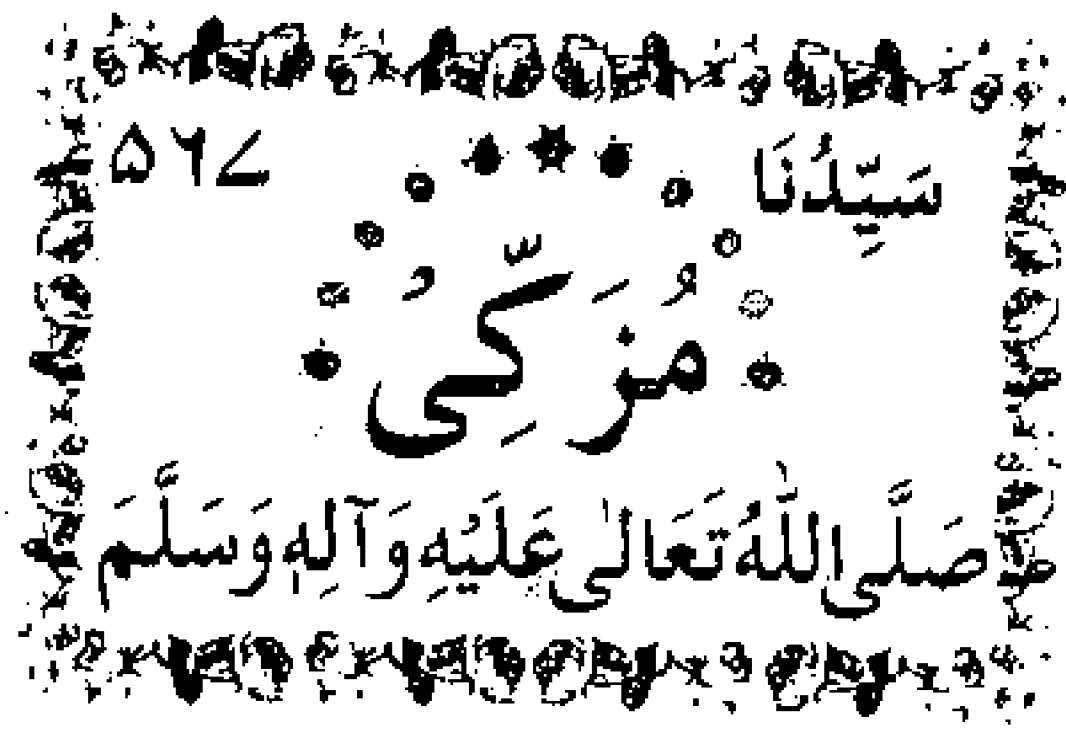 سَيِّدُنَا ۵۶۷
مُزَكِّیُ
صَلَّی اللّٰهُ تَعَالٰی عَلَيْهِ وَآلِهٖ وَسَلَّمَ